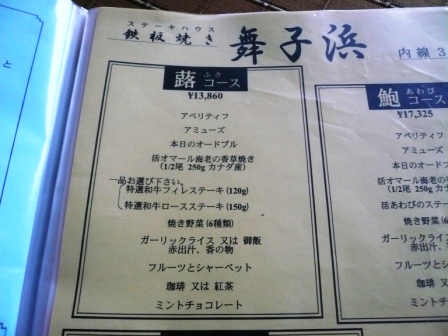 と
ステーキハウス
鉄板焼き 舞子浜
内線3
ふき
蕗コース
¥13,860
アペリティフ
アミューズ
本日のオードブル
活オマール海老の香草焼き
(1/2尾 250g カナダ産)
一品お選び下さい。
特選和牛フィレステーキ(120g)
特選和牛ロースステーキ(150g)
焼き野菜(6種類)
ガーリックライス 又は 御飯
赤出汁、香の物
フルーツとシャーベット
珈琲 又は 紅茶
ミントチョコレート
あわび
鮑コース
¥17,325
アペリティフ
アミューズ
本日のオードブ
活オマール海老の
(1/2尾 250g カナ
活あわびのステー
焼き野菜(6
ガーリックライス
赤出汁、
フルーツと
珈琲
ミント